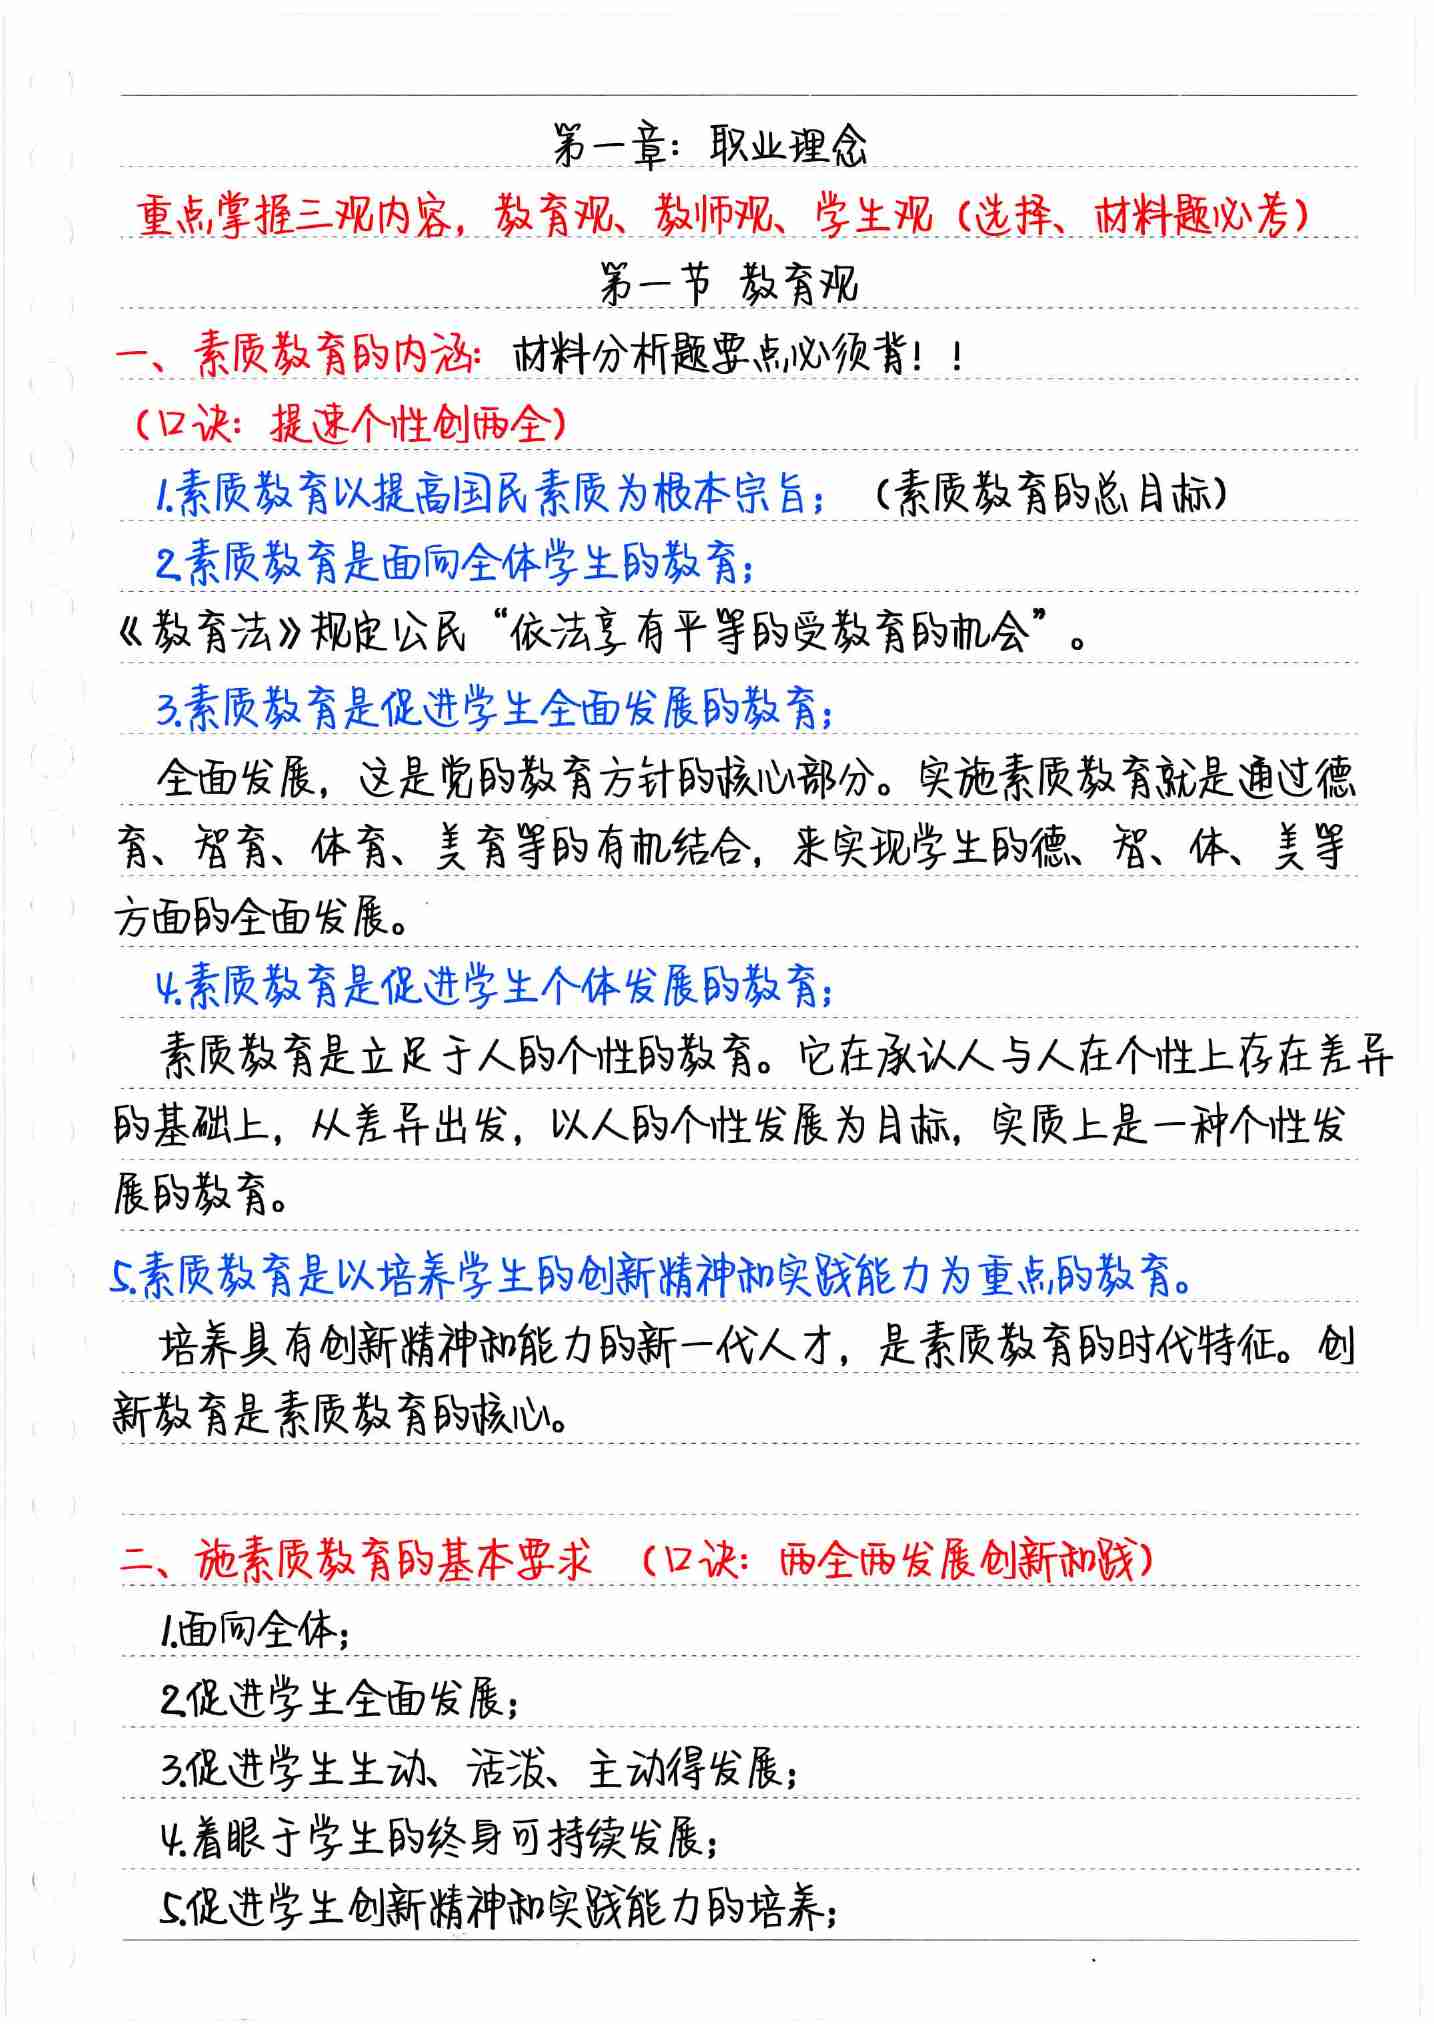 第一章：职业理念
重点掌握三观内容，教育观、教师观、学生观（选择、材料题必考）
第一节 教育观
一、素质教育的内涵：材料分析题要点必须背！！
（口诀：提速个性创两全）
1.素质教育以提高国民素质为根本宗旨；（素质教育的总目标）
2.素质教育是面向全体学生的教育；
《教育法》规定公民“依法享有平等的受教育的机会”。
3.素质教育是促进学生全面发展的教育；
全面发展，这是党的教育方针的核心部分。实施素质教育就是通过德
育、智育、体育、美育等的有机结合，来实现学生的德、智、体、美等
方面的全面发展。
4.素质教育是促进学生个体发展的教育；
素质教育是立足于人的个性的教育。它在承认人与人在个性上存在差异
的基础上，从差异出发，以人的个性发展为目标，实质上是一种个性发
展的教育。
5.素质教育是以培养学生的创新精神和实践能力为重点的教育。
培养具有创新精神和能力的新一代人才，是素质教育的时代特征。创
新教育是素质教育的核心。
二、施素质教育的基本要求 （口诀：两全两发展创新和践）
1.面向全体；
2.促进学生全面发展；
3.促进学生生动、活泼、主动得发展；
4.着眼于学生的终身可持续发展；
5.促进学生创新精神和实践能力的培养；